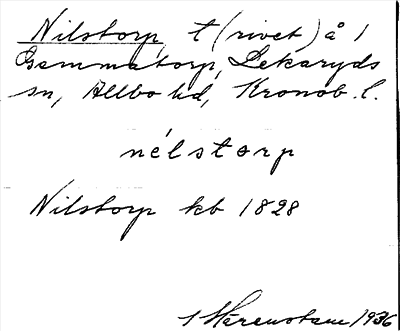 Nilstorp t (rivet) å 1
Gammatorp, Lekaryds
sn, Allbo hd, Kronob. l.
nélstorp
Nilstorp kb 1828
1936